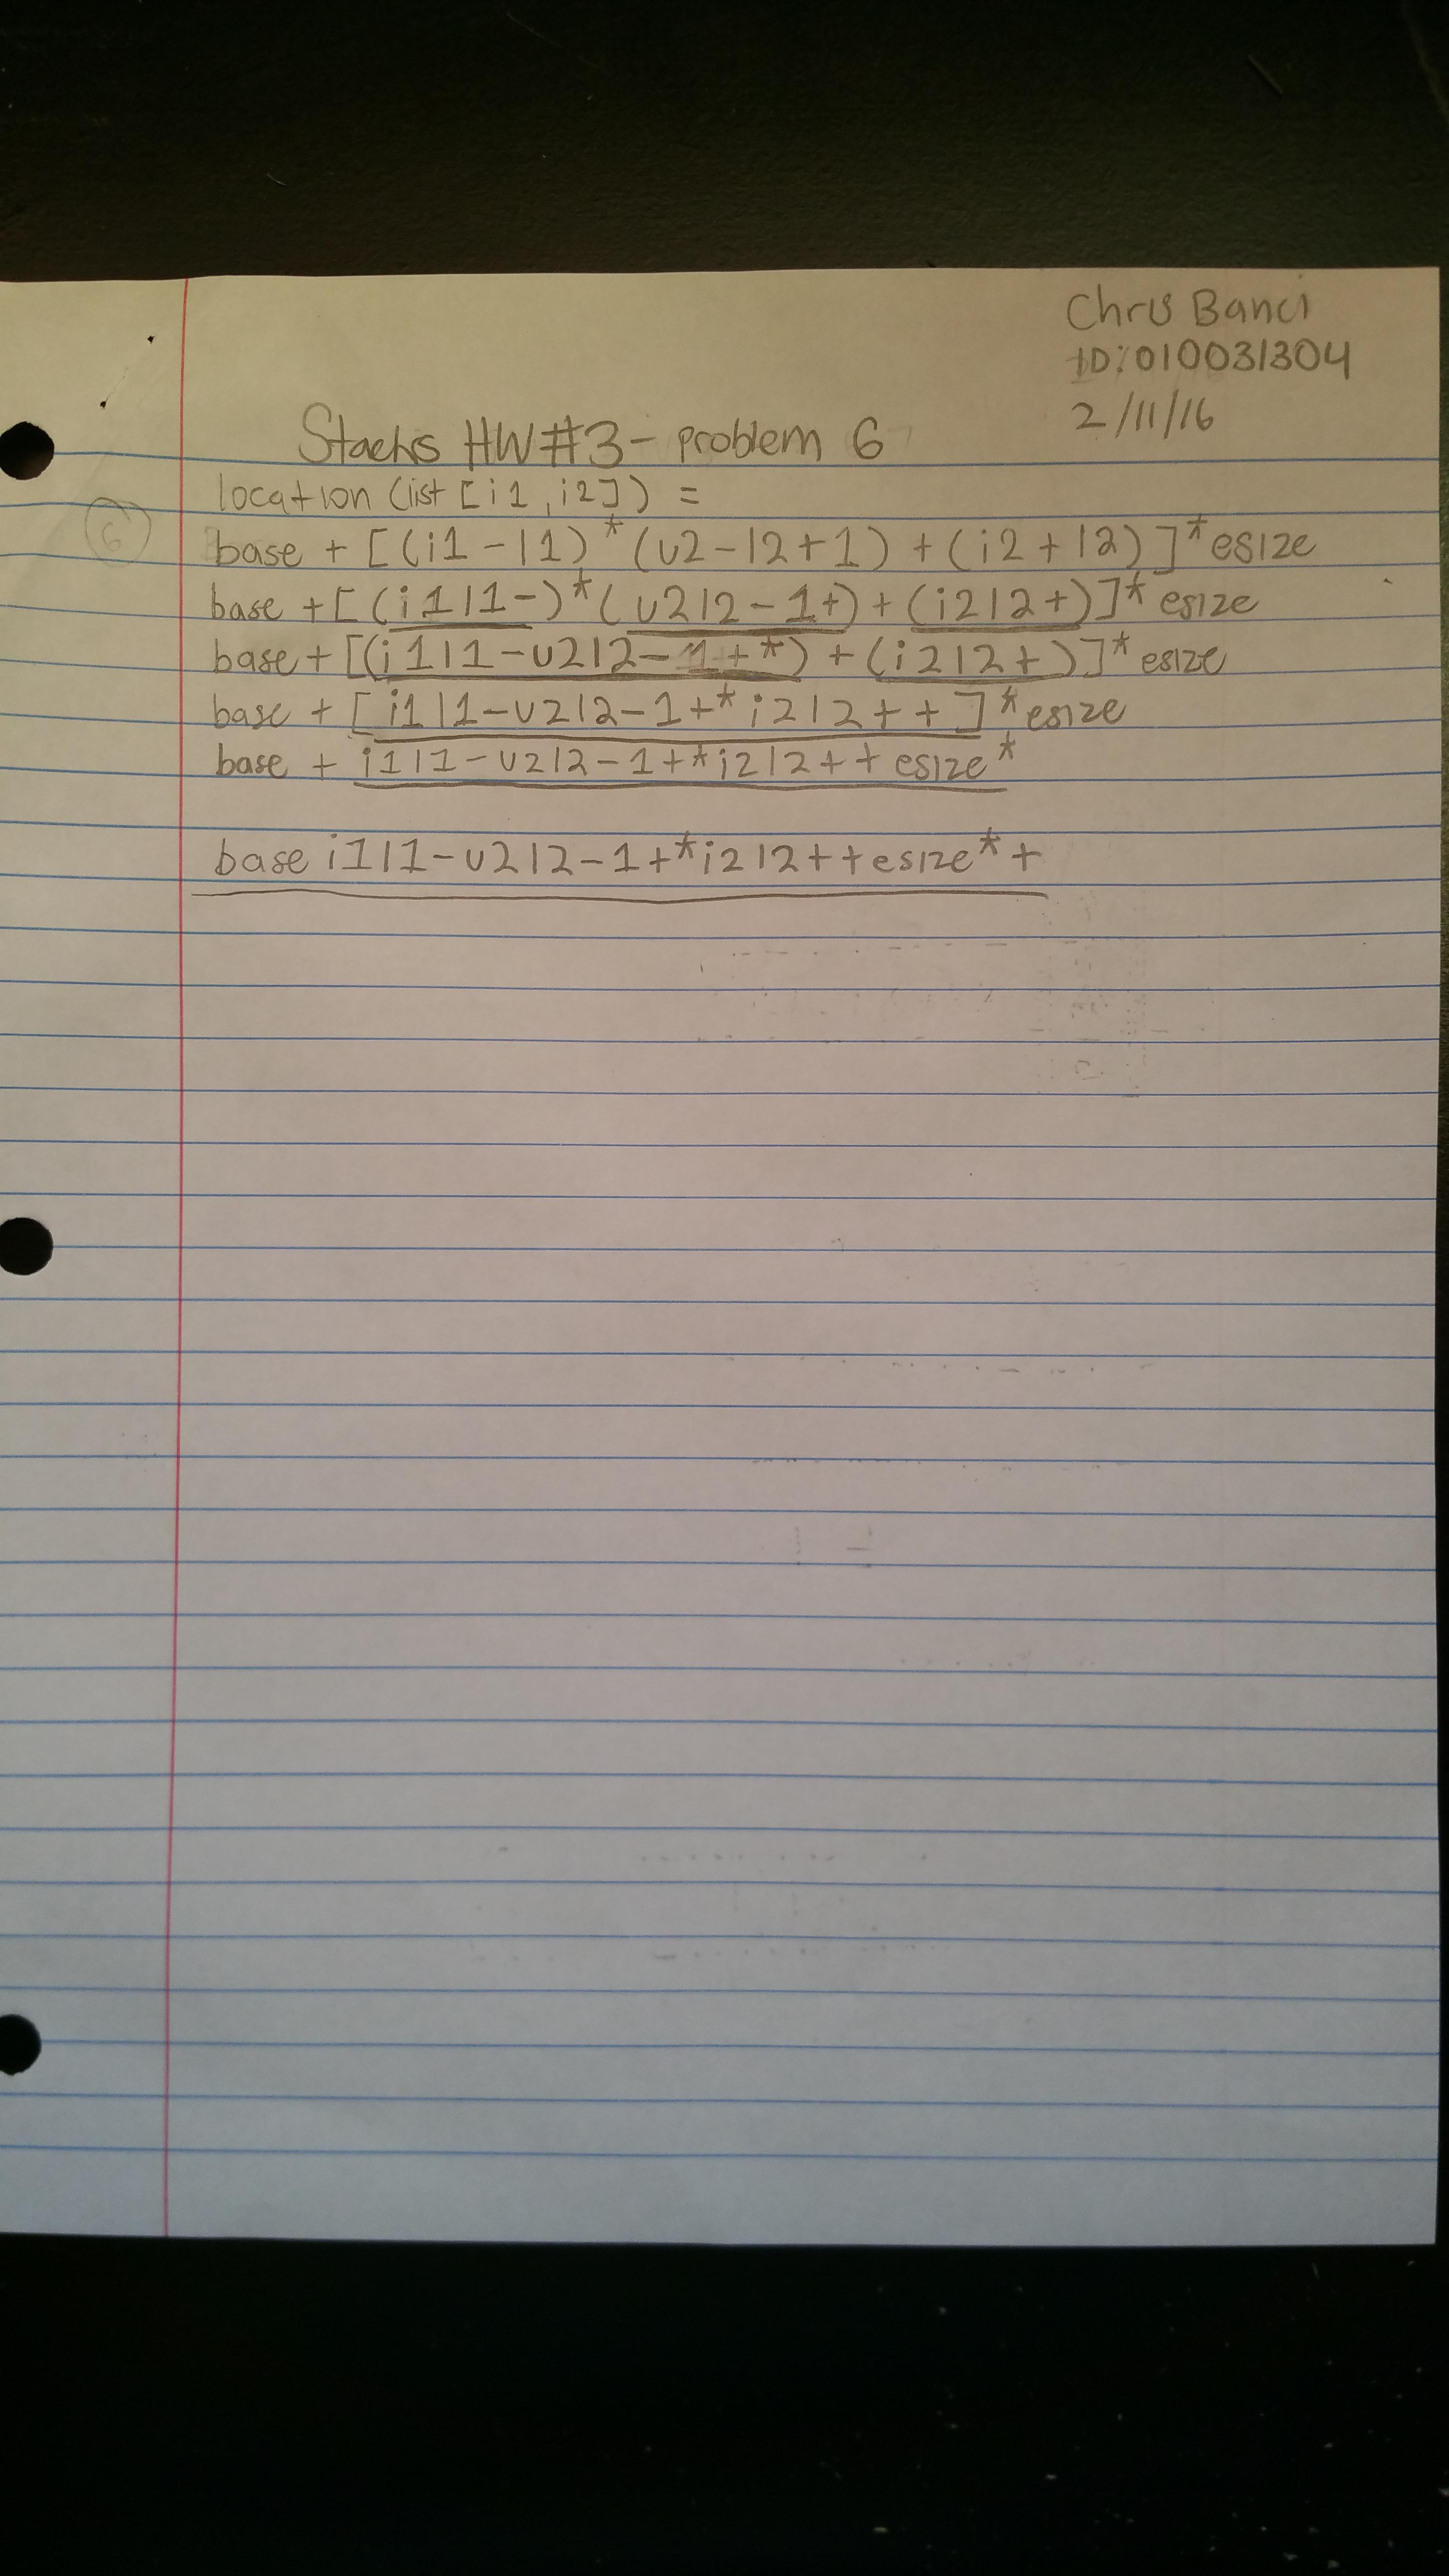 Chris Banci
ID: 010031304
2/11/16
Stacks HW#3 - problem 6
location (list [i1, i2]) =
6
base + [(i1 - l1) * (u2 - l2 + 1) + (i2 + l2)] * esize
base + [(i1 l1 -) * (u2 l2 - 1 +) + (i2 l2 +)] * esize
base + [(i1 l1 - u2 l2 - 1 + *) + (i2 l2 +)] * esize
base + [i1 l1 - u2 l2 - 1 + * i2 l2 + +] * esize
base + i1 l1 - u2 l2 - 1 + * i2 l2 + + esize *
base i1 l1 - u2 l2 - 1 + * i2 l2 + + esize * +